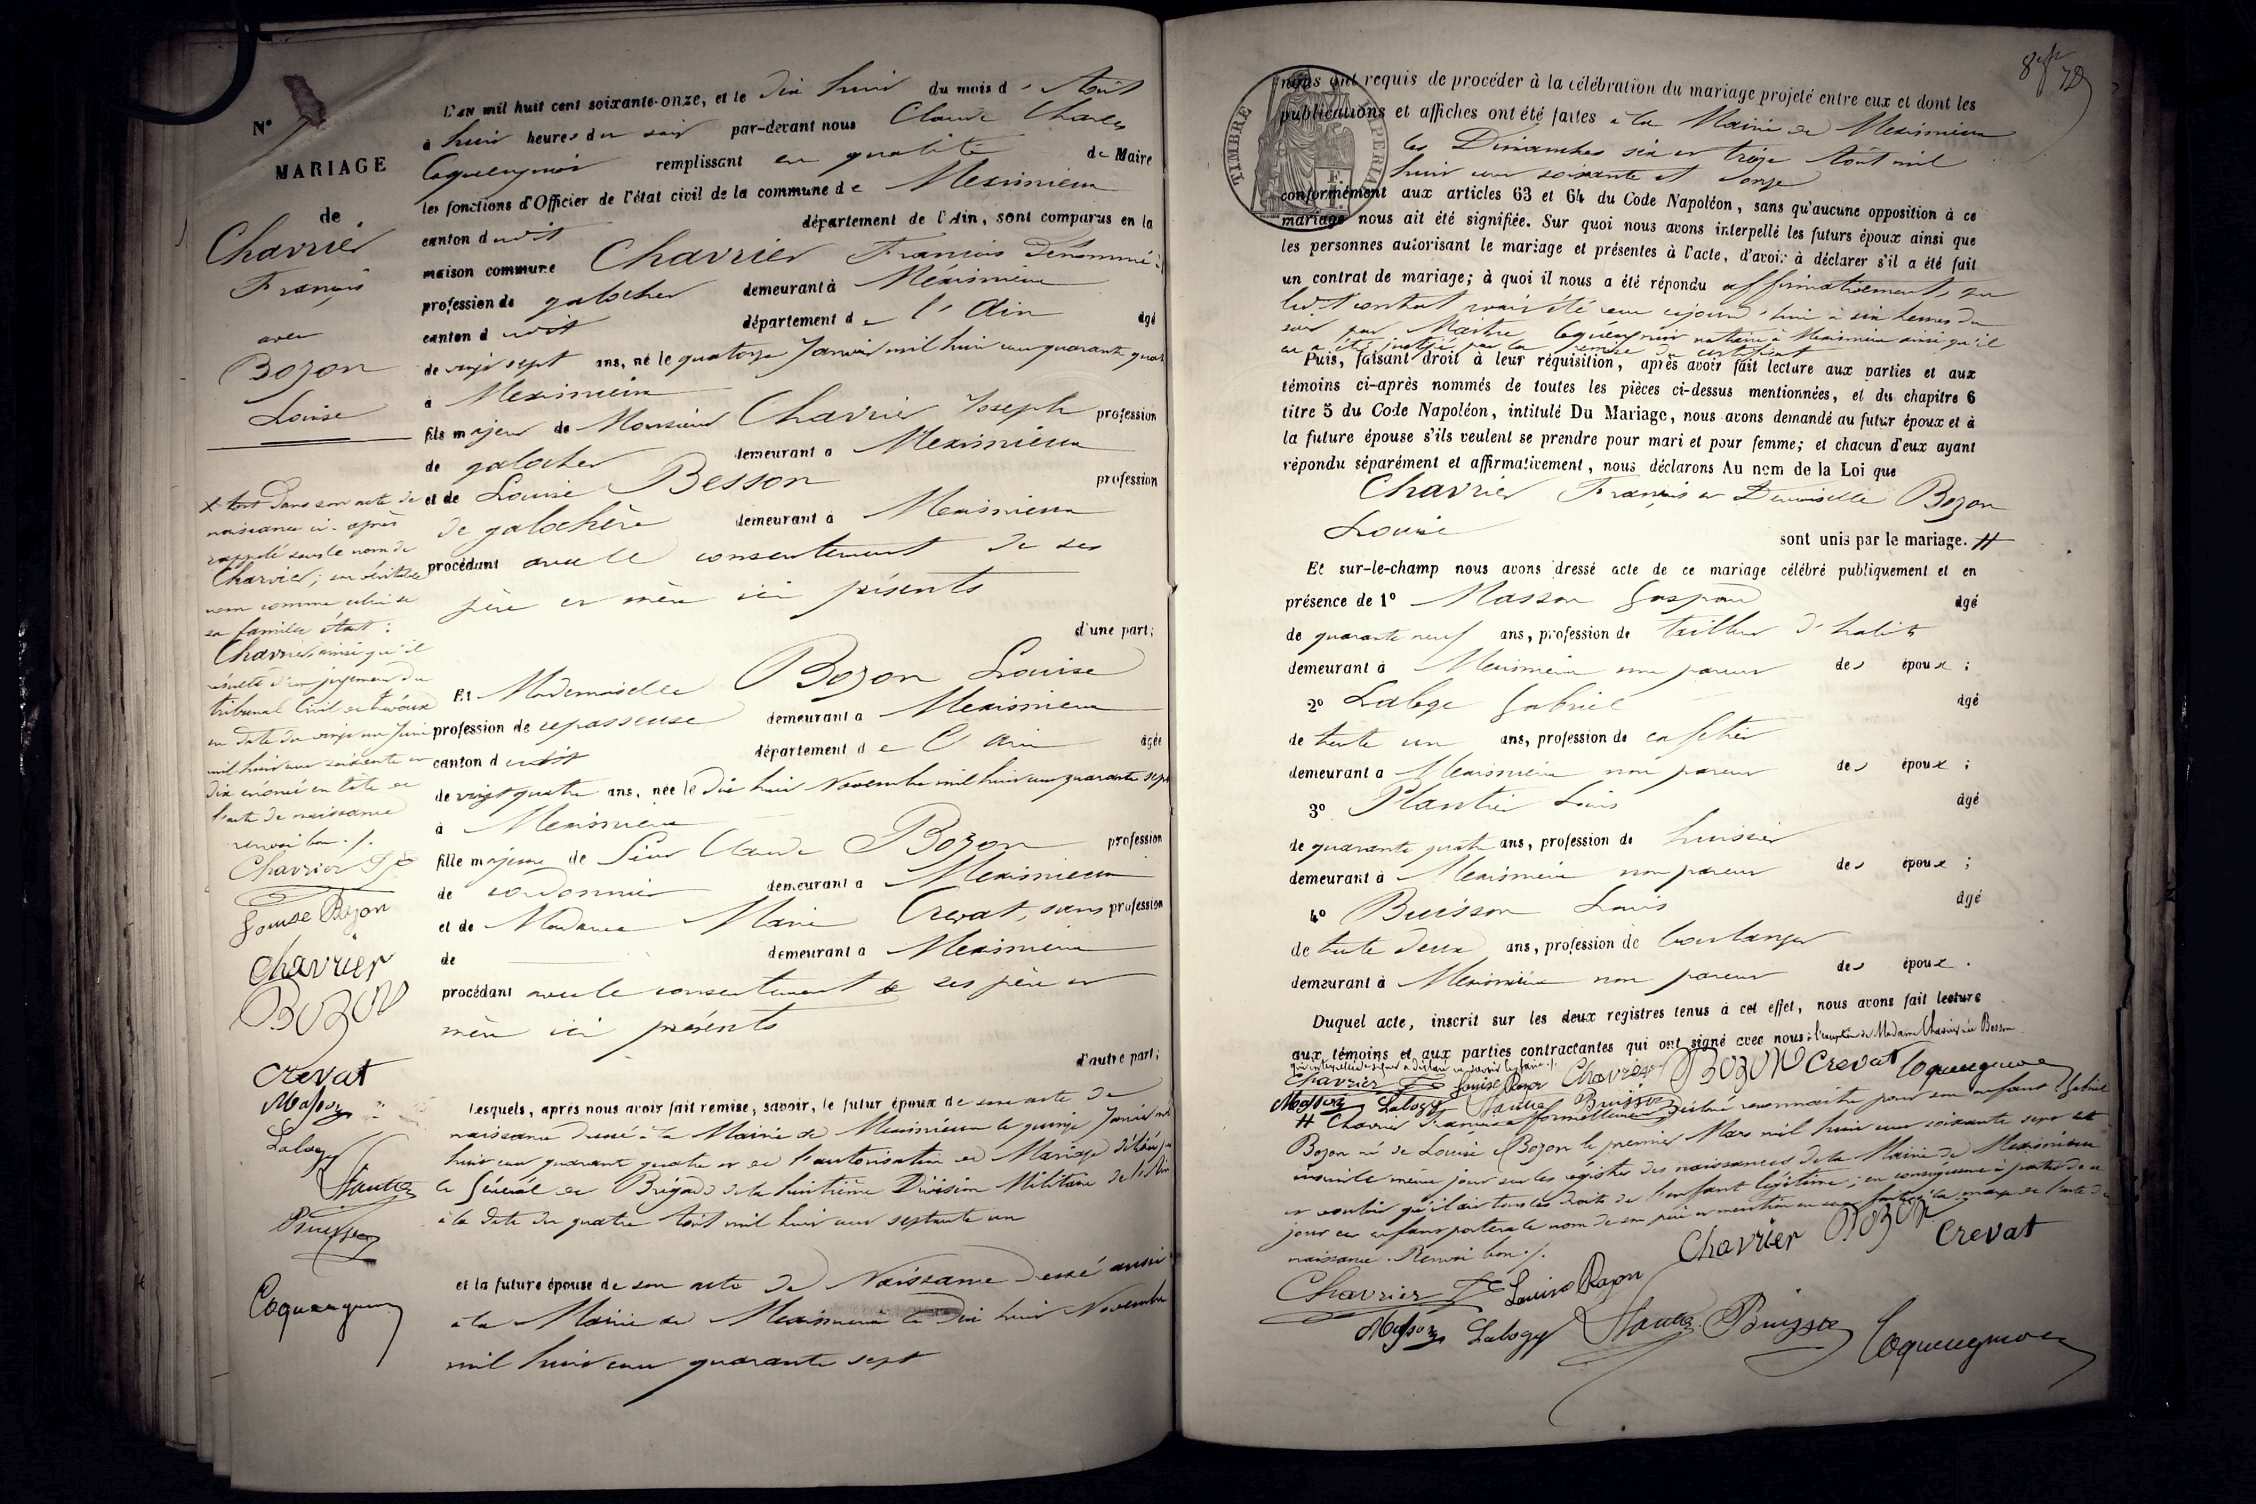 N°
MARIAGE
de
Chavrier
François
avec
Bozon
Louise
L'an mil huit cent soixante-onze, et le dix huit du mois d'Août
à huit heures du soir par-devant nous Claude Charles
Coquengnot remplissant en qualité de Maire
les fonctions d'Officier de l'état civil de la commune de Meximieux
canton dudit département de l'Ain, sont comparus en la
maison commune Chavrier François Dénommé
profession de galocher demeurant à Méximieux
canton dudit département de l'Ain âgé
de vingt sept ans, né le quatorze Janvier mil huit cent quarante quatre
à Meximieux
fils majeur de Monsieur Chavrier Joseph profession
de galocher demeurant à Meximieux
et de Louise Besson profession
de galochère demeurant à Meximieux
procédant avec le consentement de ses
père et mère ici présents
d'une part;
Et Mademoiselle Bozon Louise
profession de repasseuse demeurant à Meximieux
canton dudit département de l'Ain âgée
de vingt quatre ans, née le dix huit Novembre mil huit cent quarante sept
à Meximieux
fille majeure de Sieur Claude Bozon profession
de cordonnier demeurant à Meximieux
et de Madame Marie Crevat, sans profession
de demeurant à Meximieux
procédant avec le consentement de ses père et
mère ici présents
d'autre part;
Lesquels, après nous avoir fait remise, savoir, le futur époux de son acte de
naissance dressé à la Mairie de Meximieux le quinze Janvier mil
huit cent quarante quatre et de l'autorisation de Mariage délivrée
le Général de Brigade de la huitième Division Militaire de l'Ain
à la date du quatre Août mil huit cent septante un
et la future épouse de son acte de Naissance dressé aussi
à la Mairie de Meximieux le dix huit Novembre
mil huit cent quarante sept
X dans son acte de
naissance ci-après
rappelé sous le nom de
Charvier; son véritable
nom comme celui de
sa famille étant:
Chavrier ainsi qu'il
résulte d'un jugement du
tribunal Civil de Trévoux
en date du vingt un Juin
mil huit cent soixante et
dix énoncé en tête de
l'acte de naissance
renvoi bon ./.
Chavrier
Louise Bozon
Chavrier
BOZON
Crevat
Masson
Laloge
Plantier
Buisson
Coquengnot
72
TIMBRE IMPERIAL
nous ont requis de procéder à la célébration du mariage projeté entre eux et dont les
publications et affiches ont été faites à la Mairie de Meximieux
les Dimanches six et treize Août mil
huit cent soixante et onze
conformément aux articles 63 et 64 du Code Napoléon, sans qu'aucune opposition à ce
mariage nous ait été signifiée. Sur quoi nous avons interpellé les futurs époux ainsi que
les personnes autorisant le mariage et présentes à l'acte, d'avoir à déclarer s'il a été fait
un contrat de mariage; à quoi il nous a été répondu affirmativement, que
ledit contrat avait été reçu aujourd'hui à six heures du
soir par Maître Coquengnot notaire à Meximieux ainsi qu'il
en a été justifié par la remise du certificat
Puis, faisant droit à leur réquisition, après avoir fait lecture aux parties et aux
témoins ci-après nommés de toutes les pièces ci-dessus mentionnées, et du chapitre 6
titre 5 du Code Napoléon, intitulé Du Mariage, nous avons demandé au futur époux et à
la future épouse s'ils veulent se prendre pour mari et pour femme; et chacun d'eux ayant
répondu séparément et affirmativement, nous déclarons Au nom de la Loi que
Chavrier François et Demoiselle Bozon
Louise
sont unis par le mariage. #
Et sur-le-champ nous avons dressé acte de ce mariage célébré publiquement et en
présence de 1° Masson Gaspard âgé
de quarante neuf ans, profession de tailleur d'habits
demeurant à Meximieux non parent des époux;
2° Laloge Gabriel âgé
de trente un ans, profession de cafetier
demeurant à Meximieux non parent des époux;
3° Plantier Louis âgé
de quarante quatre ans, profession de huissier
demeurant à Meximieux non parent des époux;
4° Buisson Louis âgé
de trente deux ans, profession de boulanger
demeurant à Meximieux non parent des époux.
Duquel acte, inscrit sur les deux registres tenus à cet effet, nous avons fait lecture
aux témoins et aux parties contractantes qui ont signé avec nous: à l'exception de Madame Chavrier née Besson
qui interpellée de signer a déclaré ne savoir le faire ./.
Chavrier Louise Bozon Chavrier BOZON Crevat Coquengnot
Masson Laloge Plantier Buisson
# Chavrier François a formellement déclaré reconnaître pour son enfant Gabriel
Bozon né de Louise Bozon le premier Mars mil huit cent soixante sept et
inscrit le même jour sur les registres des naissances de la Mairie de Meximieux
et vouloir qu'il ait tous les droits de l'enfant légitime; en conséquence à partir de ce
jour cet enfant portera le nom de son père et mention en sera faite à la marge de l'acte de
naissance. Renvoi bon ./.
Chavrier BOZON Crevat
Chavrier Louise Bozon
Masson Laloge Plantier Buisson Coquengnot